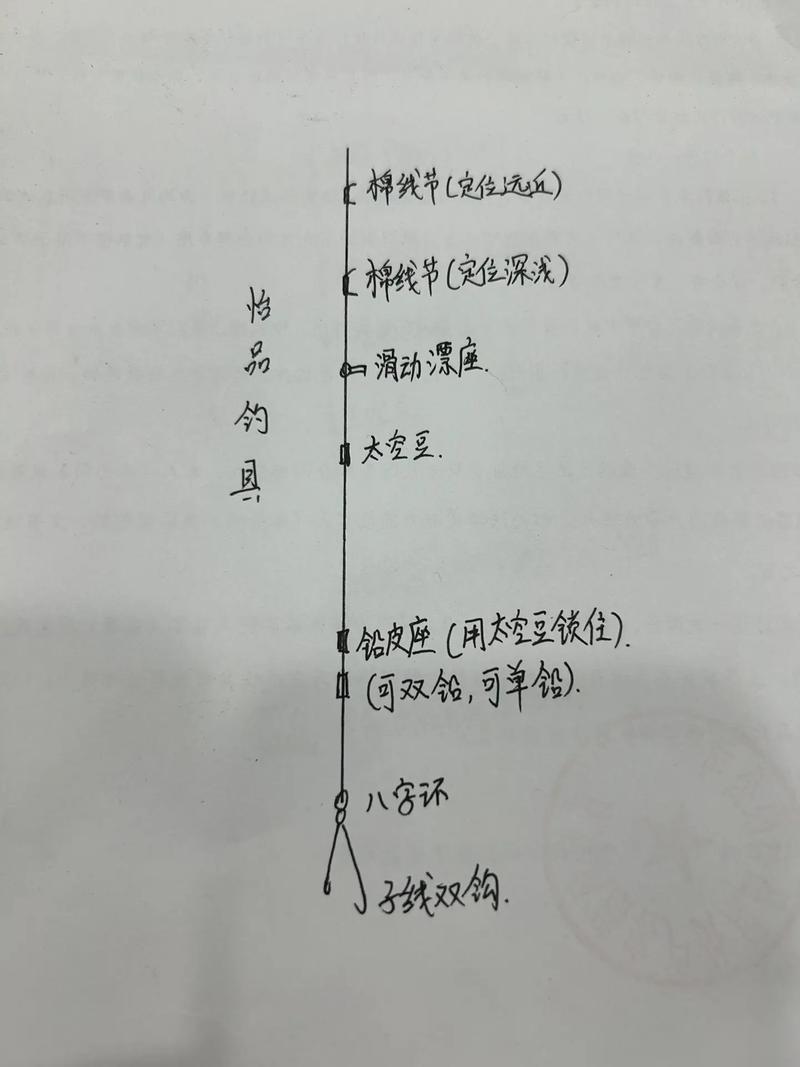 棉线节(定位远近)
棉线节(定位深浅)
怡品钓具
滑动漂座.
太空豆.
铅皮座(用太空豆锁住).
(可双铅,可单铅).
八字环
子线双钩.